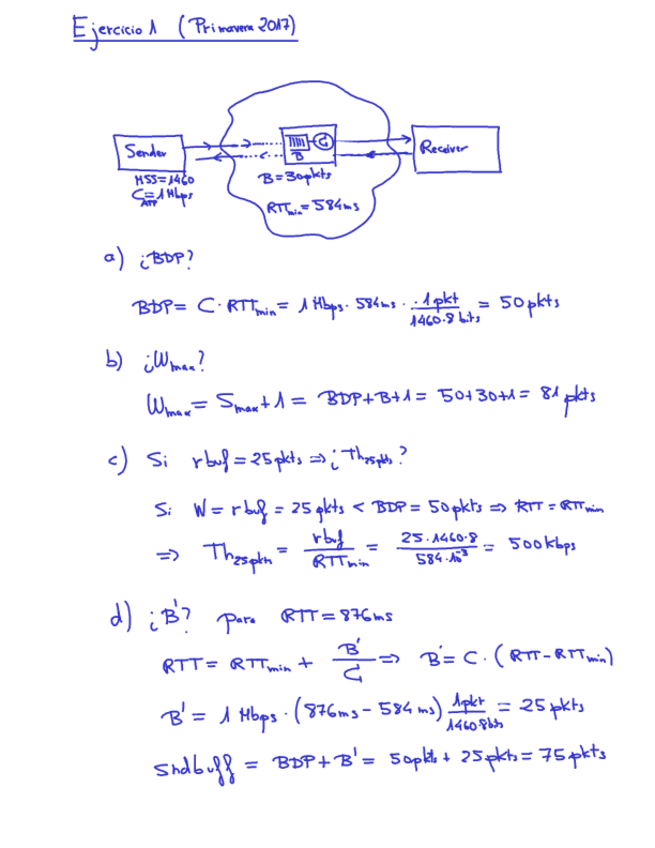 Ejercicio 1 (Primavera 2017)
Sender
B
C
Receiver
MSS=1460
C_APP=1Mbps
B=30pkts
RTT_min=584ms
a) ¿BDP?
BDP= C·RTT_min= 1 Mbps· 584ms · 1pkt / 1460·8 bits = 50 pkts
b) ¿W_max?
W_max= S_max+1= BDP+B+1= 50+30+1= 81 pkts
c) Si rbuf=25pkts ⇒ ¿Th_25pkts?
Si W=rbuf=25 pkts < BDP=50pkts ⇒ RTT=RTT_min
⇒ Th_25pkts= rbuf / RTT_min = 25·1460·8 / 584·10^-3 = 500kbps
d) ¿B'? para RTT=876ms
RTT= RTT_min + B' / C ⇒ B'= C·(RTT-RTT_min)
B'= 1 Mbps·(876ms-584ms) 1pkt / 1460·8bits = 25 pkts
Sndbuff = BDP+B'= 50pkts+ 25pkts=75pkts